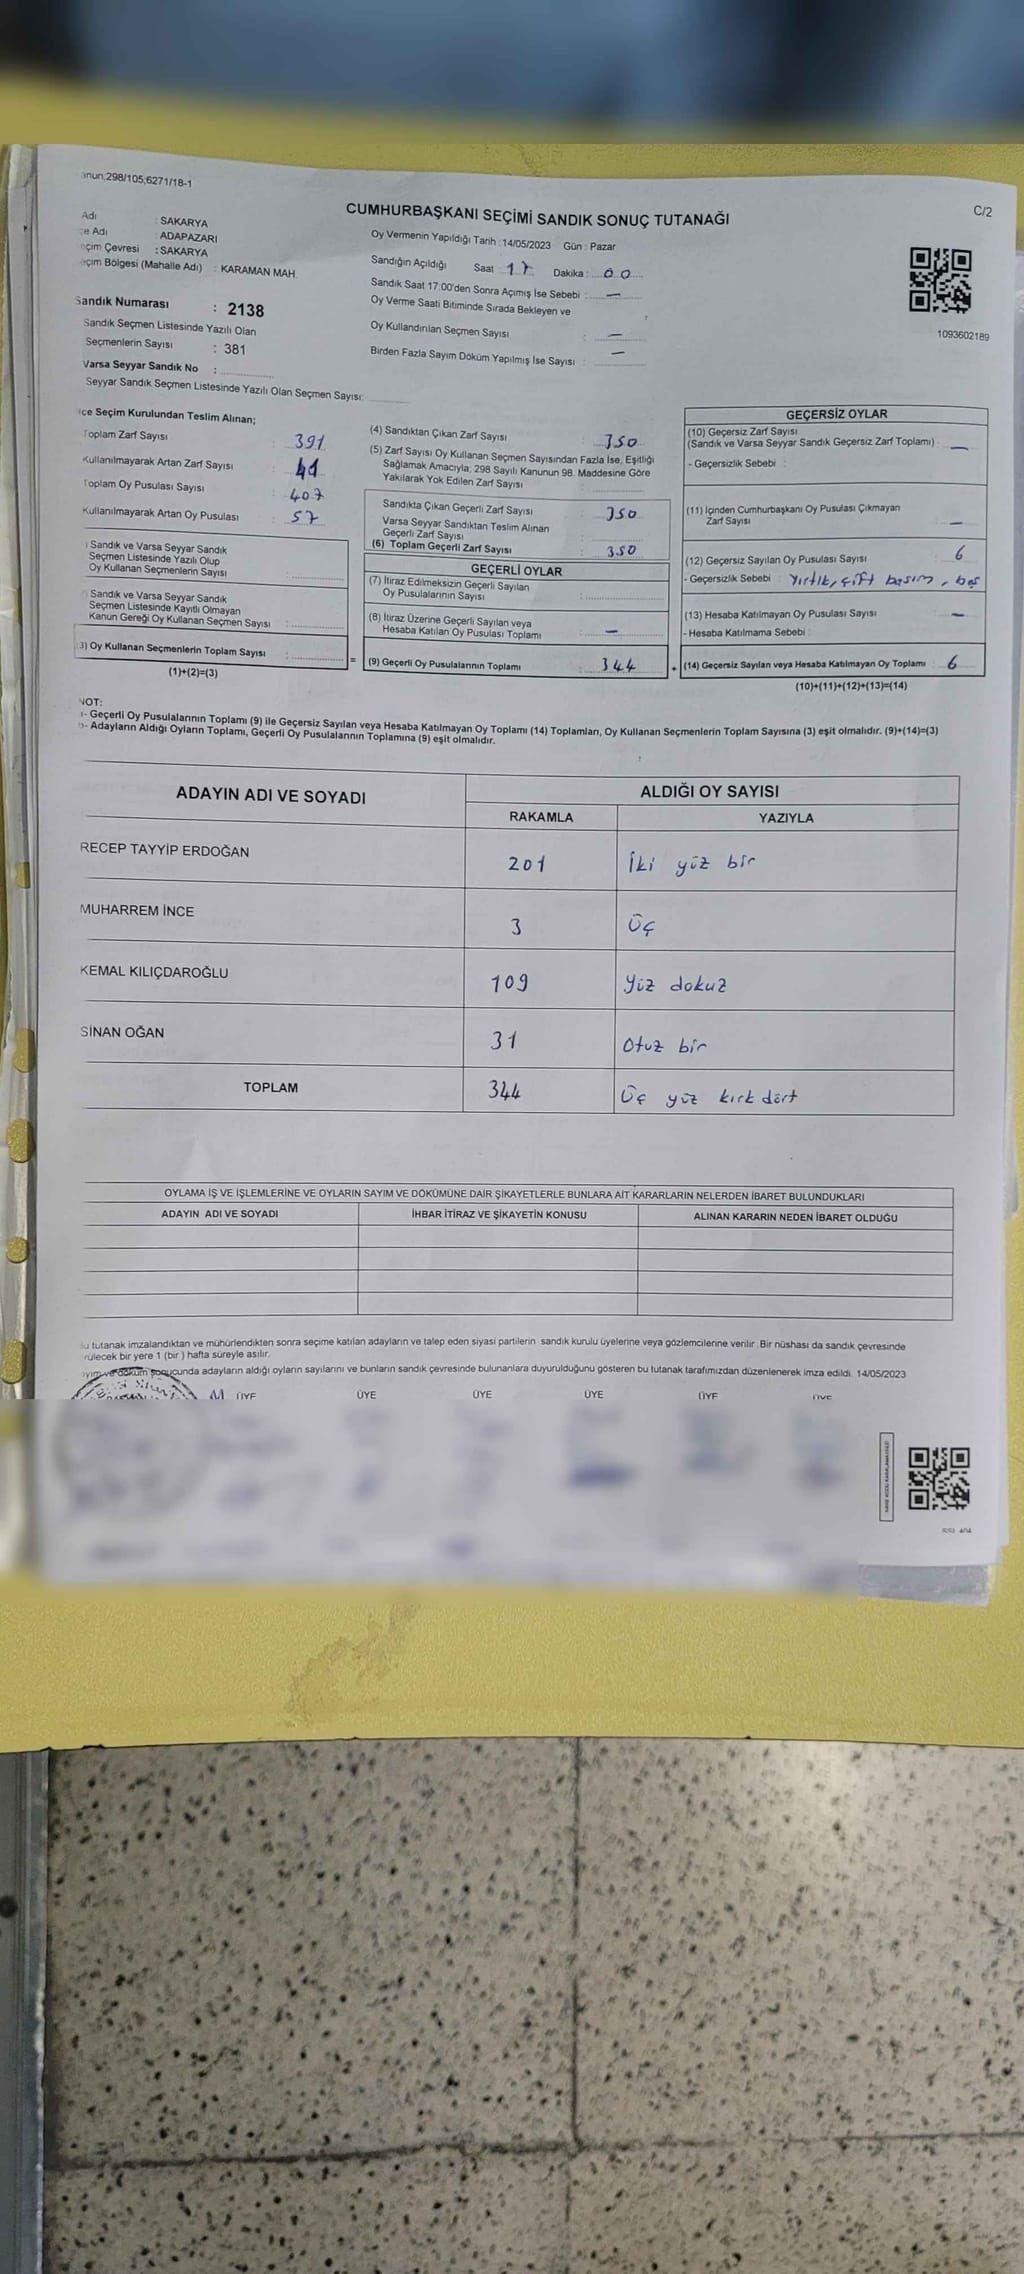 anun;298/105;6271/18-1
C/2
CUMHURBAŞKANI SEÇİMİ SANDIK SONUÇ TUTANAĞI
Adı : SAKARYA
e Adı : ADAPAZARI
eçim Çevresi : SAKARYA
eçim Bölgesi (Mahalle Adı) : KARAMAN MAH.
Oy Vermenin Yapıldığı Tarih : 14/05/2023 Gün : Pazar
Sandığın Açıldığı Saat 17 Dakika : 00
Sandık Saat 17:00'den Sonra Açımış İse Sebebi : —
Oy Verme Saati Bitiminde Sırada Bekleyen ve
Oy Kullandırılan Seçmen Sayısı : —
Birden Fazla Sayım Döküm Yapılmış İse Sayısı : —
1093602189
Sandık Numarası : 2138
Sandık Seçmen Listesinde Yazılı Olan
Seçmenlerin Sayısı : 381
Varsa Seyyar Sandık No :
Seyyar Sandık Seçmen Listesinde Yazılı Olan Seçmen Sayısı:
çe Seçim Kurulundan Teslim Alınan;
Toplam Zarf Sayısı : 391
Kullanılmayarak Artan Zarf Sayısı : 41
Toplam Oy Pusulası Sayısı : 407
Kullanılmayarak Artan Oy Pusulası : 57
) Sandık ve Varsa Seyyar Sandık
Seçmen Listesinde Yazılı Olup
Oy Kullanan Seçmenlerin Sayısı :
) Sandık ve Varsa Seyyar Sandık
Seçmen Listesinde Kayıtlı Olmayan
Kanun Gereği Oy Kullanan Seçmen Sayısı :
3) Oy Kullanan Seçmenlerin Toplam Sayısı :
(1)+(2)=(3)
=
(4) Sandıktan Çıkan Zarf Sayısı : 350
(5) Zarf Sayısı Oy Kullanan Seçmen Sayısından Fazla İse, Eşitliği
Sağlamak Amacıyla, 298 Sayılı Kanunun 98. Maddesine Göre
Yakılarak Yok Edilen Zarf Sayısı :
Sandıkta Çıkan Geçerli Zarf Sayısı : 350
Varsa Seyyar Sandıktan Teslim Alınan
Geçerli Zarf Sayısı :
(6) Toplam Geçerli Zarf Sayısı : 350
GEÇERLİ OYLAR
(7) İtiraz Edilmeksizin Geçerli Sayılan
Oy Pusulalarının Sayısı :
(8) İtiraz Üzerine Geçerli Sayılan veya
Hesaba Katılan Oy Pusulası Toplamı : —
(9) Geçerli Oy Pusulalarının Toplamı : 344
+
GEÇERSİZ OYLAR
(10) Geçersiz Zarf Sayısı
(Sandık ve Varsa Seyyar Sandık Geçersiz Zarf Toplamı) : —
- Geçersizlik Sebebi :
(11) İçinden Cumhurbaşkanı Oy Pusulası Çıkmayan
Zarf Sayısı : —
(12) Geçersiz Sayılan Oy Pusulası Sayısı : 6
- Geçersizlik Sebebi : Yırtık, çift basım, boş
(13) Hesaba Katılmayan Oy Pusulası Sayısı : —
- Hesaba Katılmama Sebebi :
(14) Geçersiz Sayılan veya Hesaba Katılmayan Oy Toplamı : 6
(10)+(11)+(12)+(13)=(14)
NOT:
- Geçerli Oy Pusulalarının Toplamı (9) ile Geçersiz Sayılan veya Hesaba Katılmayan Oy Toplamı (14) Toplamları, Oy Kullanan Seçmenlerin Toplam Sayısına (3) eşit olmalıdır. (9)+(14)=(3)
- Adayların Aldığı Oyların Toplamı, Geçerli Oy Pusulalarının Toplamına (9) eşit olmalıdır.
ADAYIN ADI VE SOYADI ALDIĞI OY SAYISI
RAKAMLA YAZIYLA
RECEP TAYYİP ERDOĞAN 201 İki yüz bir
MUHARREM İNCE 3 Üç
KEMAL KILIÇDAROĞLU 109 Yüz dokuz
SİNAN OĞAN 31 Otuz bir
TOPLAM 344 Üç yüz kırk dört
OYLAMA İŞ VE İŞLEMLERİNE VE OYLARIN SAYIM VE DÖKÜMÜNE DAİR ŞİKAYETLERLE BUNLARA AİT KARARLARIN NELERDEN İBARET BULUNDUKLARI
ADAYIN ADI VE SOYADI İHBAR İTİRAZ VE ŞİKAYETİN KONUSU ALINAN KARARIN NEDEN İBARET OLDUĞU
u tutanak imzalandıktan ve mühürlendikten sonra seçime katılan adayların ve talep eden siyasi partilerin sandık kurulu üyelerine veya gözlemcilerine verilir. Bir nüshası da sandık çevresinde
rülecek bir yere 1 (bir ) hafta süreyle asılır.
ayım ve döküm sonucunda adayların aldığı oyların sayılarını ve bunların sandık çevresinde bulunanlara duyurulduğunu gösteren bu tutanak tarafımızdan düzenlenerek imza edildi. 14/05/2023
ÜYE ÜYE ÜYE ÜYE ÜYE ÜYE